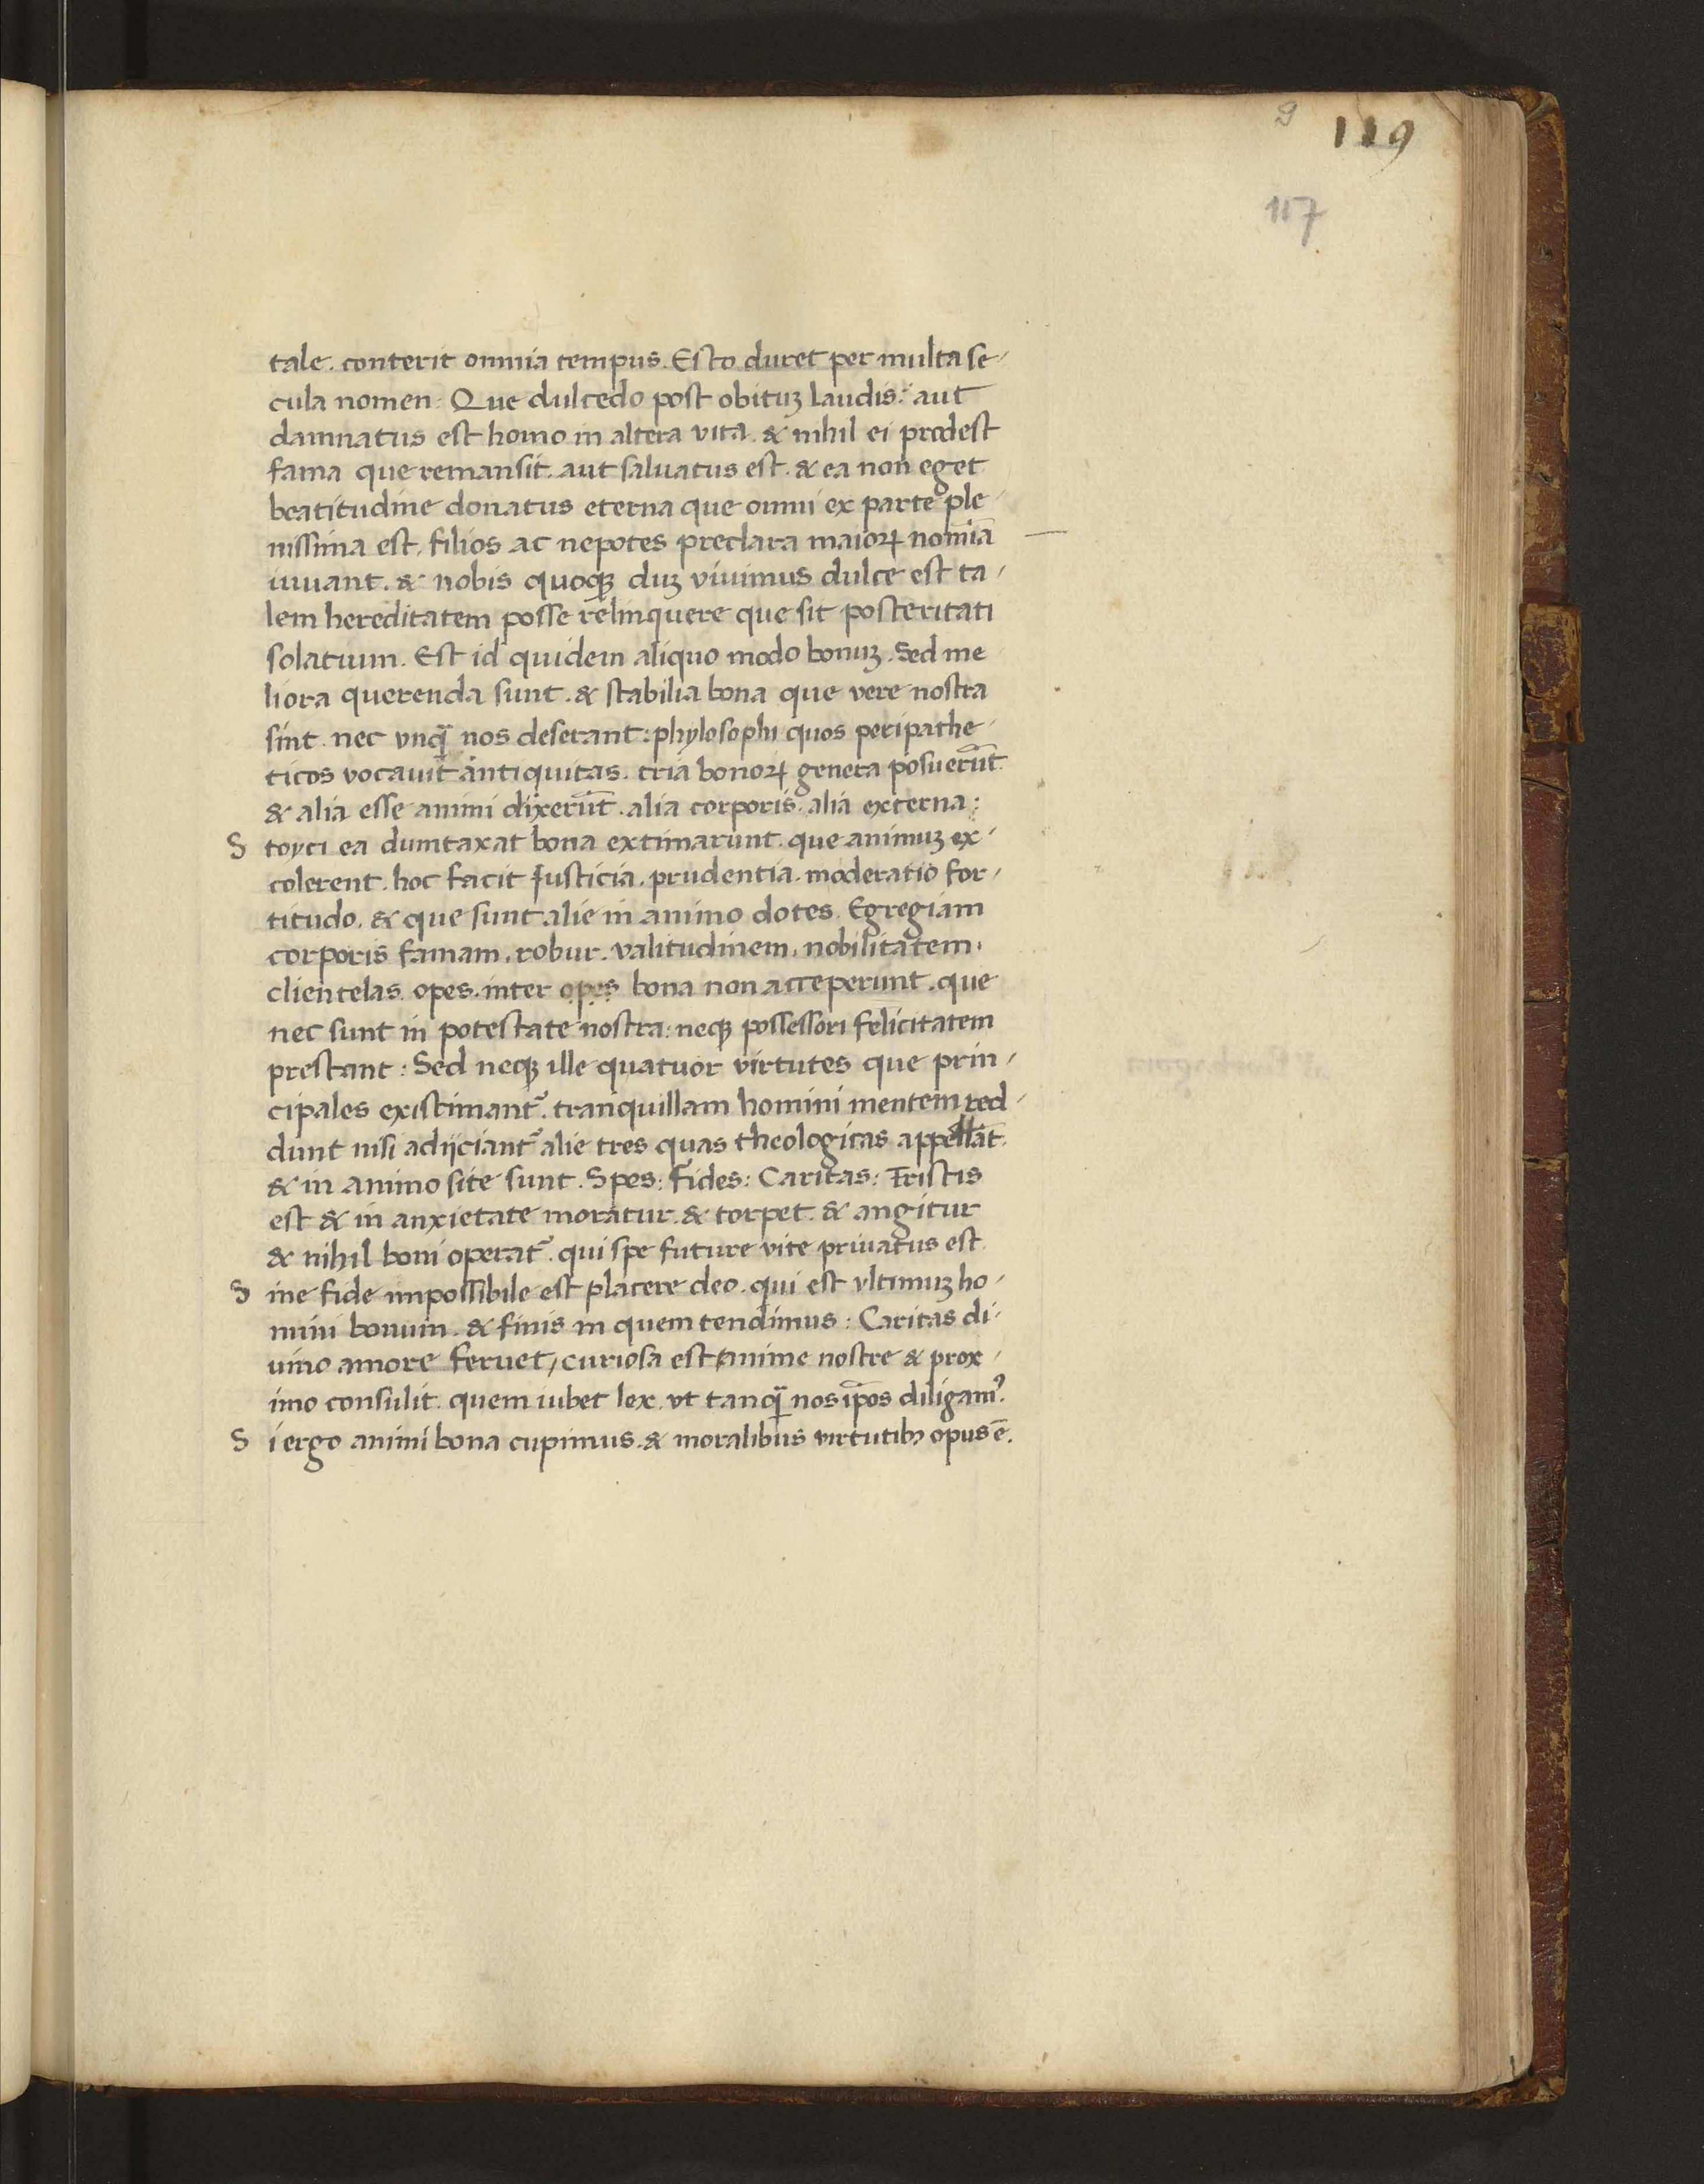 9 119
117
tale. conterit omnia tempus. Esto duret per multa se-
cula nomen: Que dulcedo post obituꝫ laudis: aut
damnatus est homo in altera vita. & nihil ei prodest
fama que remansit. aut saluatus est. & ea non eget
beatitudine donatus eterna que omni ex parte ple-
nissima est, filios ac nepotes preclara maioꝝ nomīa
iuuant. & nobis quoqꝫ duꝫ viuimus dulce est ta-
lem hereditatem posse relinquere que sit posteritati
solatium. Est id quidem aliquo modo bonuꝫ. Sed me
liora querenda sunt. & stabilia bona que vere nostra
sint. nec vnqᷓ nos deserant: phylosophi quos peripathe-
ticos vocauit antiquitas. tria bonoꝝ genera posuerūt
& alia esse animi dixerūt. alia corporis. alia externa:
S toyci ea dumtaxat bona extimarunt. que animuꝫ ex-
colerent. hoc facit Iusticia. prudentia. moderatio for-
titudo. & que sunt alie in animo dotes. Egregiam
corporis famam. robur. valitudinem. nobilitatem.
clientelas. opes. inter opes bona non acceperunt. que
nec sunt in potestate nostra: neqꝫ possessori felicitatem
prestant: Sed neqꝫ ille quatuor virtutes que prin-
cipales existimantᷣ. tranquillam homini mentem red-
dunt nisi adijciantᷣ alie tres quas theologicas appellāt.
& in animo site sunt. Spes: Fides: Caritas: Tristis
est & in anxietate moratur. & torpet. & angitur
& nihil boni operatᷣ. qui spe future vite priuatus est.
S ine fide impossibile est placere deo. qui est vltimuꝫ ho-
mini bonum. & finis in quem tendimus: Caritas di-
uino amore feruet, curiosa est anime nostre & prox-
imo consulit. quem iubet lex. vt tanqᷓ nos ip̄os diligamꝰ.
S i ergo animi bona cupimus. & moralibus virtutibꝫ opus ē.